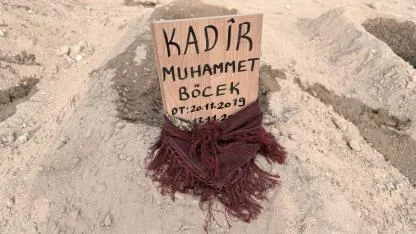 KADİR
MUHAMMET
BÖCEK
DT: 20.11.2019